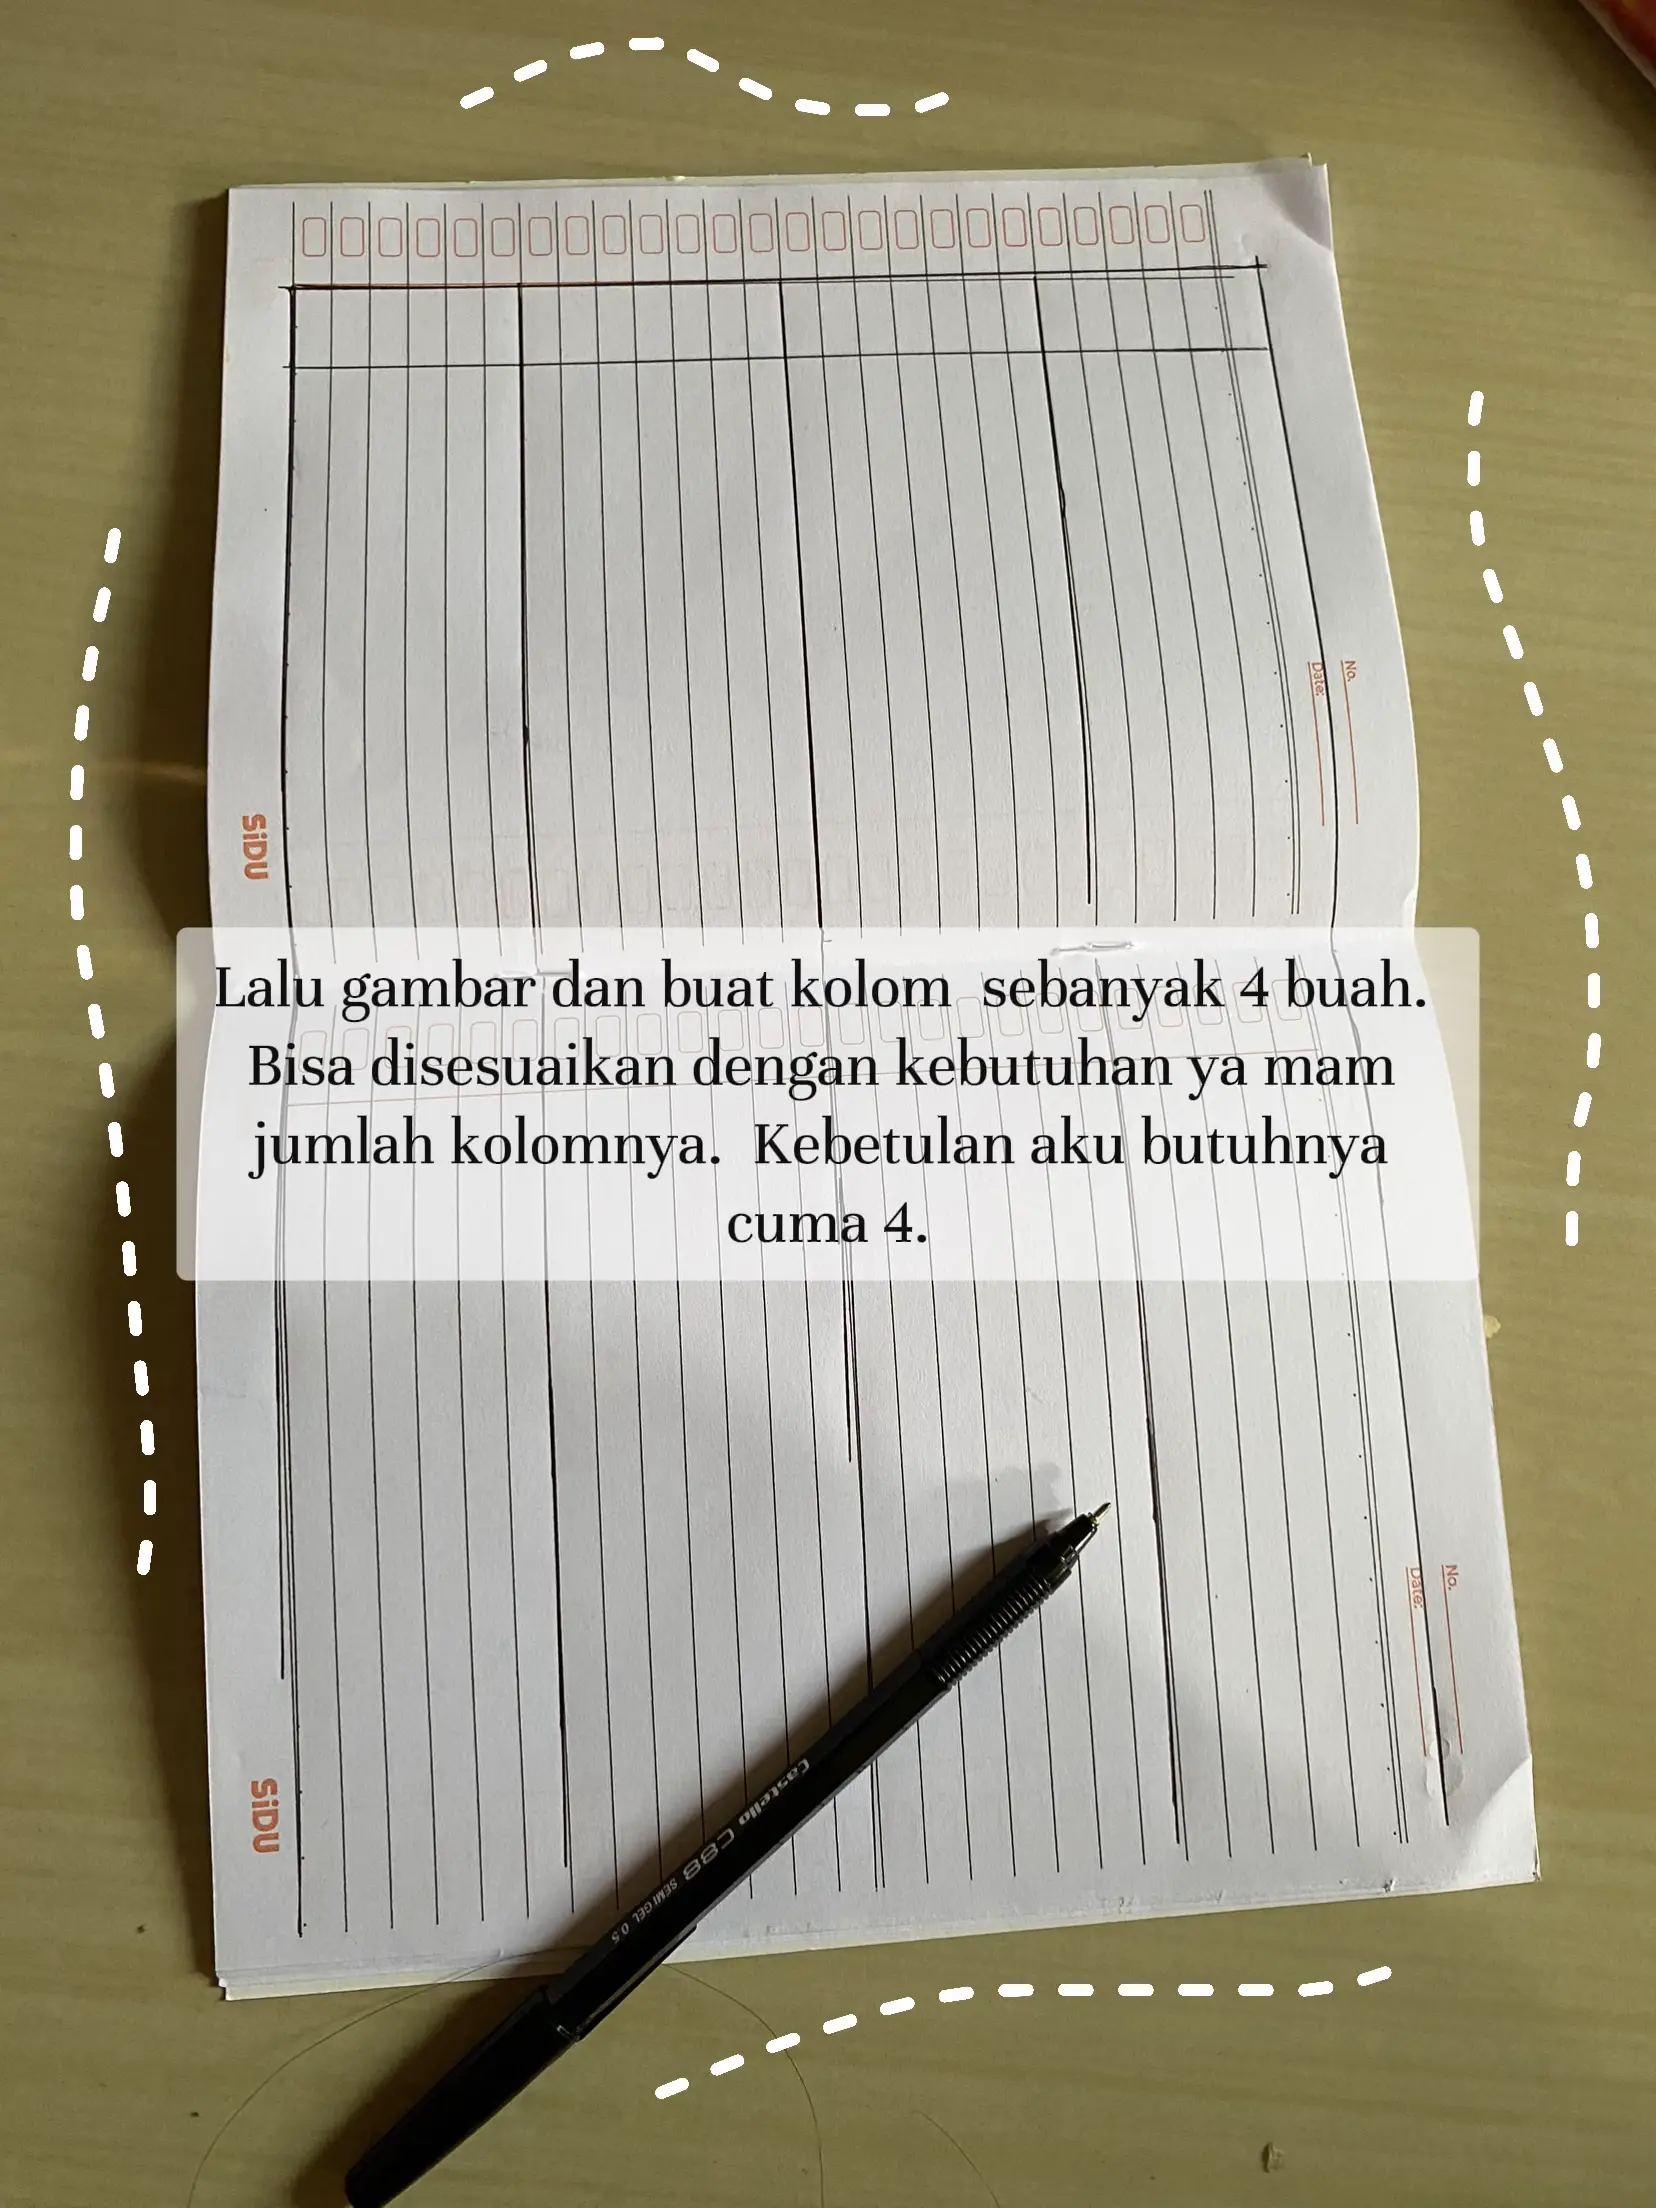 No.
Date:
SiDU
Lalu gambar dan buat kolom sebanyak 4 buah.
Bisa disesuaikan dengan kebutuhan ya mam
jumlah kolomnya. Kebetulan aku butuhnya
cuma 4.
No.
Date:
SiDU
Castello C88 SEMI GEL 0.5